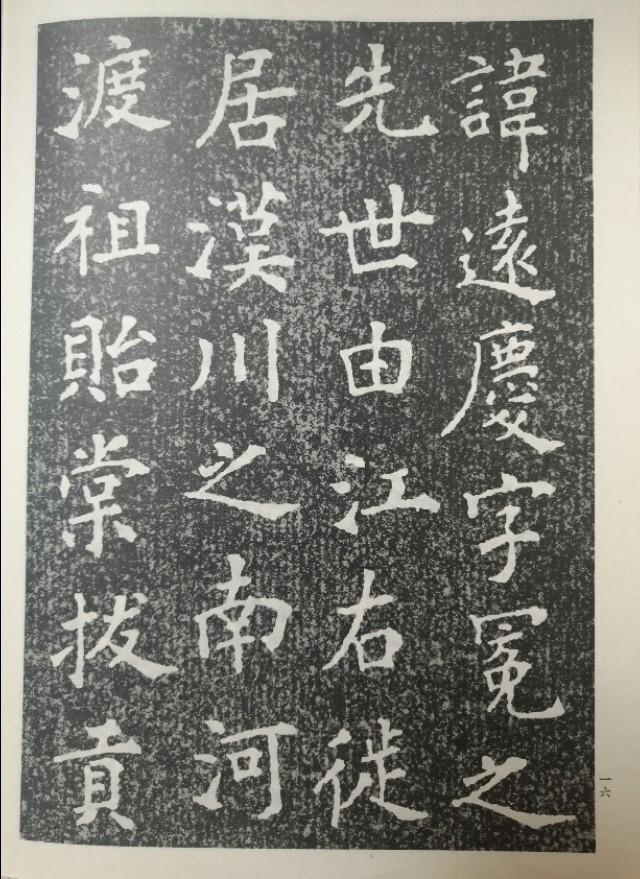 諱遠慶字冕之
先世由江右徙
居漢川之南河
渡祖貽棠拔貢
一六